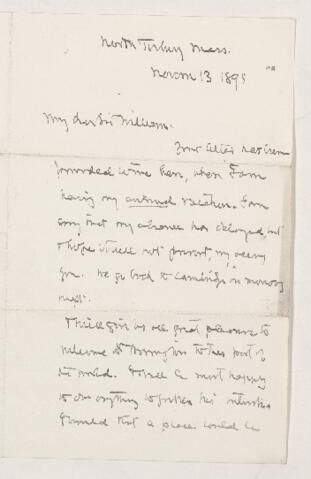 North Turbury Mass.
Novem 13 1895
My dear Sir William.
Your letter has been
forwarded to me here, where I am
having my annual vacation. I am
sorry that my absence has delayed, but
I hope it will not prevent, my seeing
you. We go back to Cambridge on monday
next.
It will give us all great pleasure to
welcome to this part of
the world. I shall be most happy
to do anything to further his
I should that a place would be